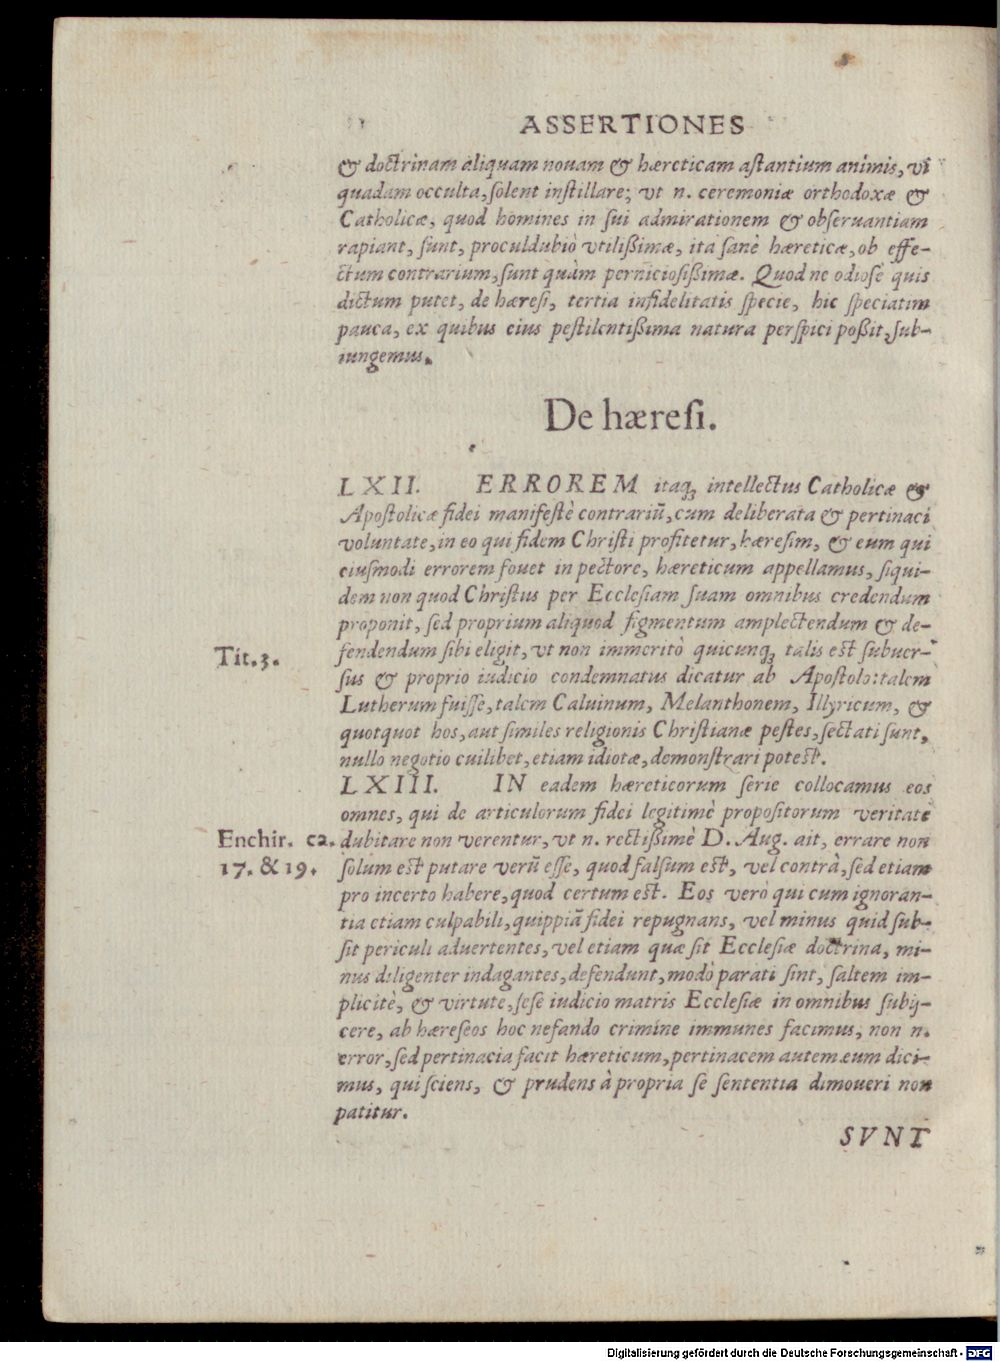 ASSERTIONES
& doctrinam aliquam nouam & hæreticam astantium animis, vi
quadam occulta, solent instillare; vt n. ceremoniæ orthodoxæ &
Catholicæ, quod homines in sui admirationem & obseruantiam
rapiant, sunt, proculdubiò vtilißimæ, ita sanè hæreticæ, ob effe-
ctum contrarium, sunt quàm perniciosißimæ. Quod ne odiosè quis
dictum putet, de hæresi, tertia infidelitatis specie, hic speciatim
pauca, ex quibus eius pestilentißima natura perspici poßit, sub-
iungemus.
De hæresi.
LXII. ERROREM itaq; intellectus Catholicæ &
Apostolicæ fidei manifestè contrariũ, cum deliberata & pertinaci
voluntate, in eo qui fidem Christi profitetur, hæresim, & eum qui
eiusmodi errorem fouet in pectore, hæreticum appellamus, siqui-
dem non quod Christus per Ecclesiam suam omnibus credendum
proponit, sed proprium aliquod figmentum amplectendum & de-
Tit. 3. fendendum sibi eligit, vt non immeritò quicunq; talis est subuer-
sus & proprio iudicio condemnatus dicatur ab Apostolo: talem
Lutherum fuisse, talem Caluinum, Melanthonem, Illyricum, &
quotquot hos, aut similes religionis Christianæ pestes, sectati sunt,
nullo negotio cuilibet, etiam idiotæ, demonstrari potest.
LXIII. IN eadem hæreticorum serie collocamus eos
omnes, qui de articulorum fidei legitimè propositorum veritate
Enchir. ca. dubitare non verentur, vt n. rectißimè D. Aug. ait, errare non
17. & 19. solum est putare verũ esse, quod falsum est, vel contrà, sed etiam
pro incerto habere, quod certum est. Eos verò qui cum ignoran-
tia etiam culpabili, quippiã fidei repugnans, vel minus quid sub-
sit periculi aduertentes, vel etiam quæ sit Ecclesiæ doctrina, mi-
nus diligenter indagantes, defendunt, modò parati sint, saltem im-
plicitè, & virtute, sese iudicio matris Ecclesiæ in omnibus subij-
cere, ab hæreseos hoc nefando crimine immunes facimus, non n.
error, sed pertinacia facit hæreticum, pertinacem autem eum dici-
mus, qui sciens, & prudens à propria se sententia dimoueri non
patitur.
SVNT
Digitalisierung gefördert durch die Deutsche Forschungsgemeinschaft - DFG